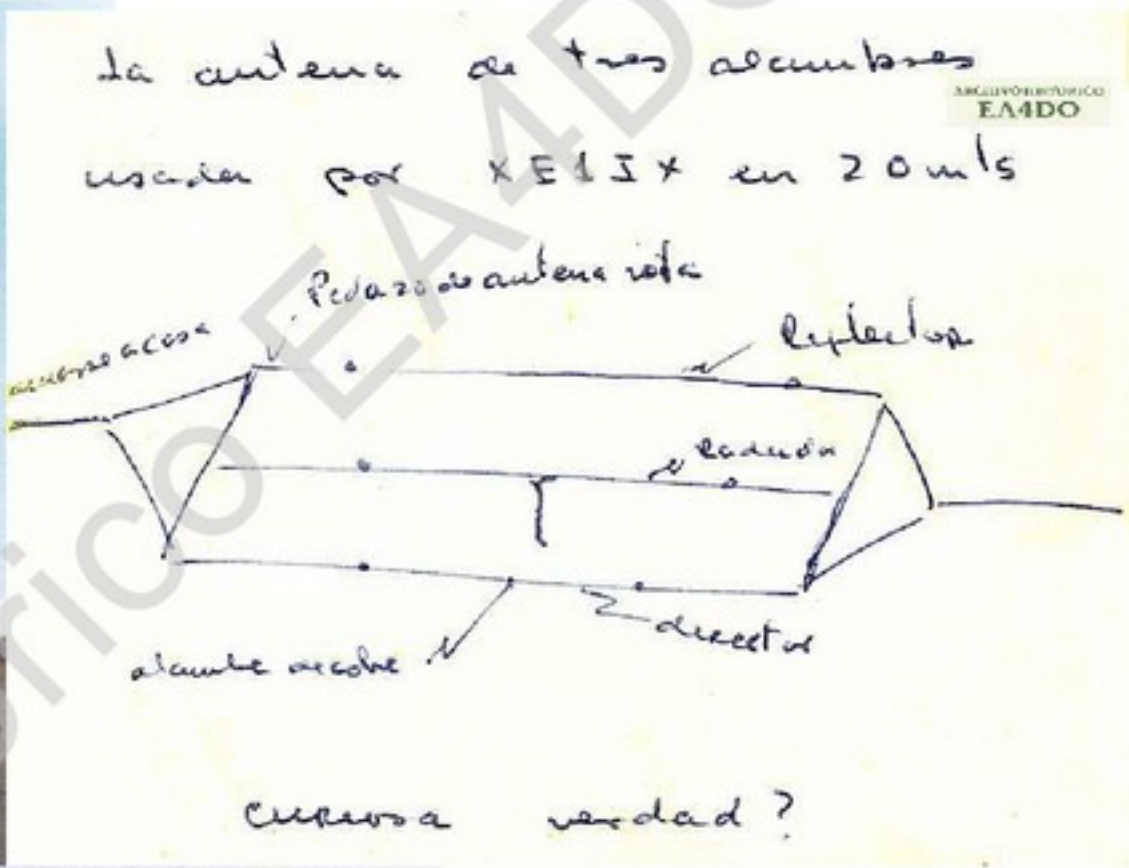 La antena de tres alambres
ARCHIVO HISTORICO
EA4DO
usada por XE1IX en 20 m's
Pedazo de antena rota
a casa
Reflector
Radiador
director
alambre de cobre
curiosa verdad?
orico EA4DO